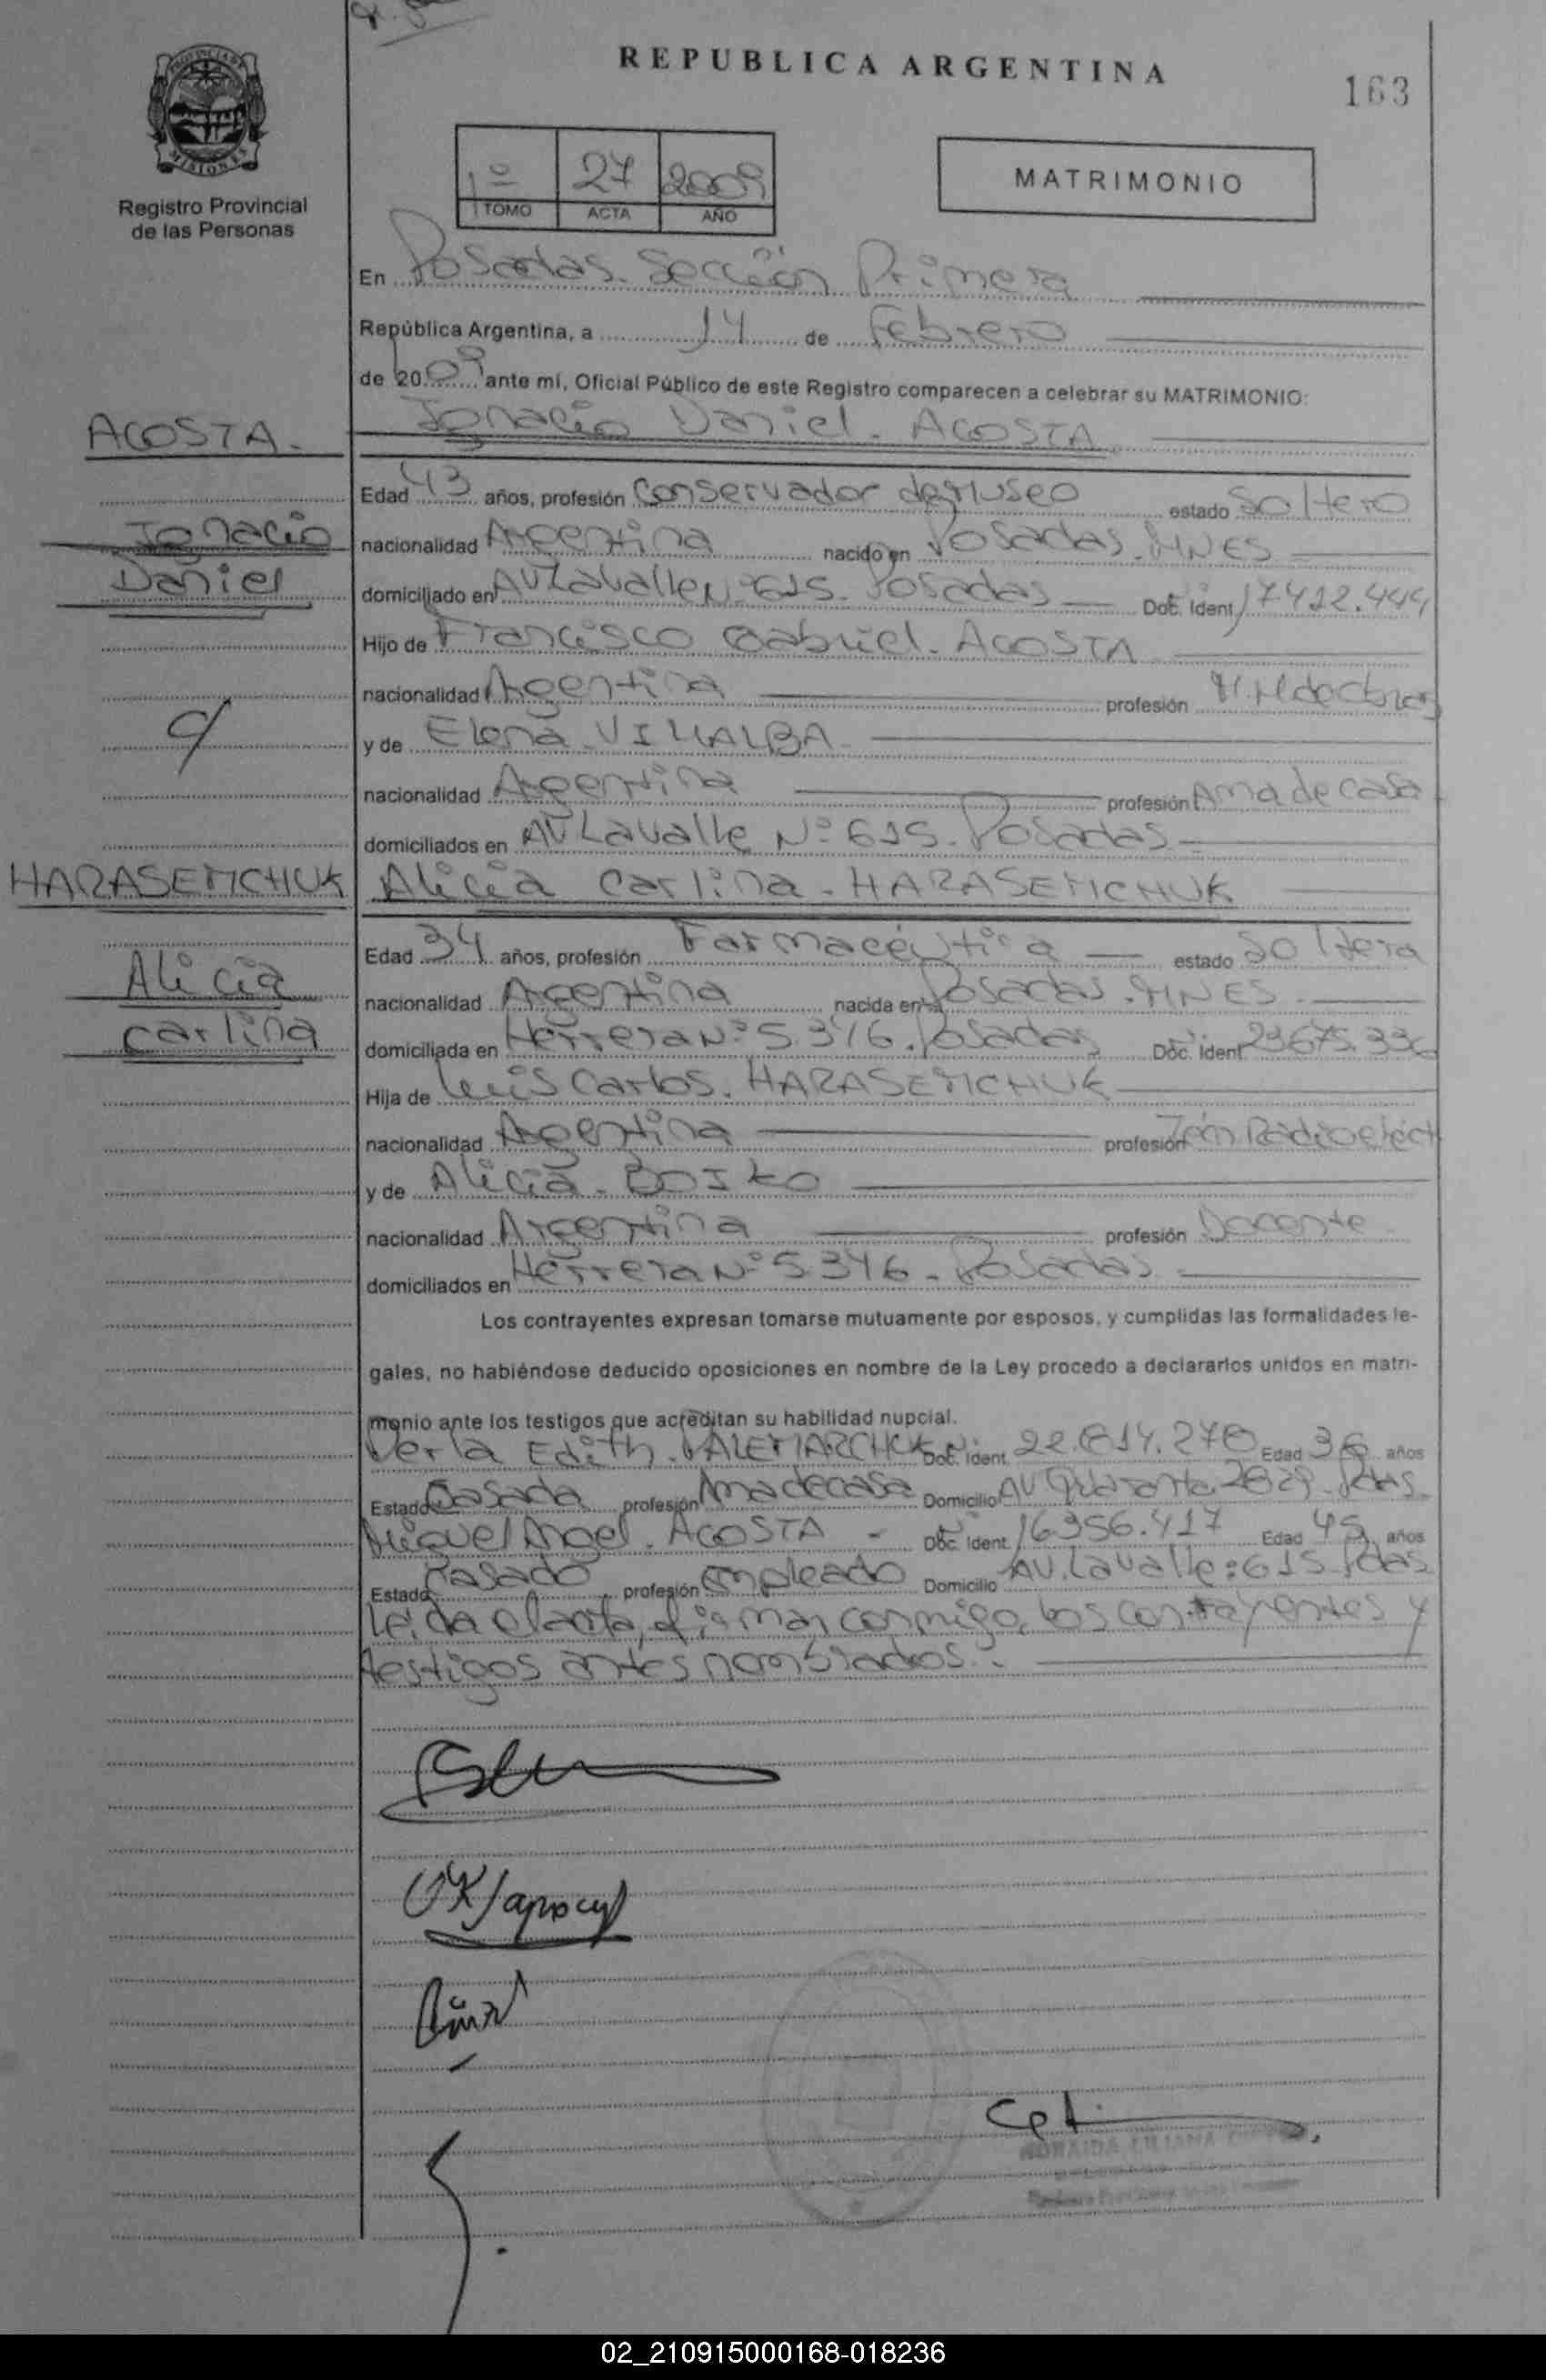 REPUBLICA ARGENTINA
163
PROVINCIA DE
MISIONES
Registro Provincial
de las Personas
1º 27 2009
TOMO ACTA AÑO
MATRIMONIO
En Posadas. Sección Primera
República Argentina, a 14 de Febrero
de 2009 ante mí, Oficial Público de este Registro comparecen a celebrar su MATRIMONIO:
ACOSTA.
Ignacio Daniel. ACOSTA
Edad 43 años, profesión Conservador de Museo estado Soltero
Ignacio
nacionalidad Argentina nacido en Posadas. MNES
Daniel
domiciliado en AV Lavalle Nº 615. Posadas Doc. Ident 17412.444
Hijo de Francisco Gabriel. ACOSTA
nacionalidad Argentina profesión
c/
y de Elena. VILLALBA
nacionalidad Argentina profesión Ama de casa
domiciliados en AV Lavalle Nº 615. Posadas
HARASEMCHUK
Alicia Carlina. HARASEMCHUK
Edad 34 años, profesión Farmacéutica estado Soltera
Alicia
nacionalidad Argentina nacida en Posadas. MNES.
Carlina
domiciliada en Herrera Nº 5.346. Posadas Doc. Ident 23675.336
Hija de Luis Carlos. HARASEMCHUK
nacionalidad Argentina profesión
y de Alicia. BOIKO
nacionalidad Argentina profesión Docente
domiciliados en Herrera Nº 5.346. Posadas
Los contrayentes expresan tomarse mutuamente por esposos, y cumplidas las formalidades le-
gales, no habiéndose deducido oposiciones en nombre de la Ley procedo a declararlos unidos en matri-
monio ante los testigos que acreditan su habilidad nupcial.
Edith. Doc. Ident. 22.814.270 Edad 36 años
Estado Casada profesión Ama de casa Domicilio AV 2829. Pdas
Miguel Angel. ACOSTA - Doc. Ident. 16356.417 Edad 45 años
Estado Casado profesión Empleado Domicilio AV. Lavalle: 615. Pdas
Leída el acta, firman conmigo, los contrayentes y
testigos antes nombrados.
LILIANA
02_210915000168-018236